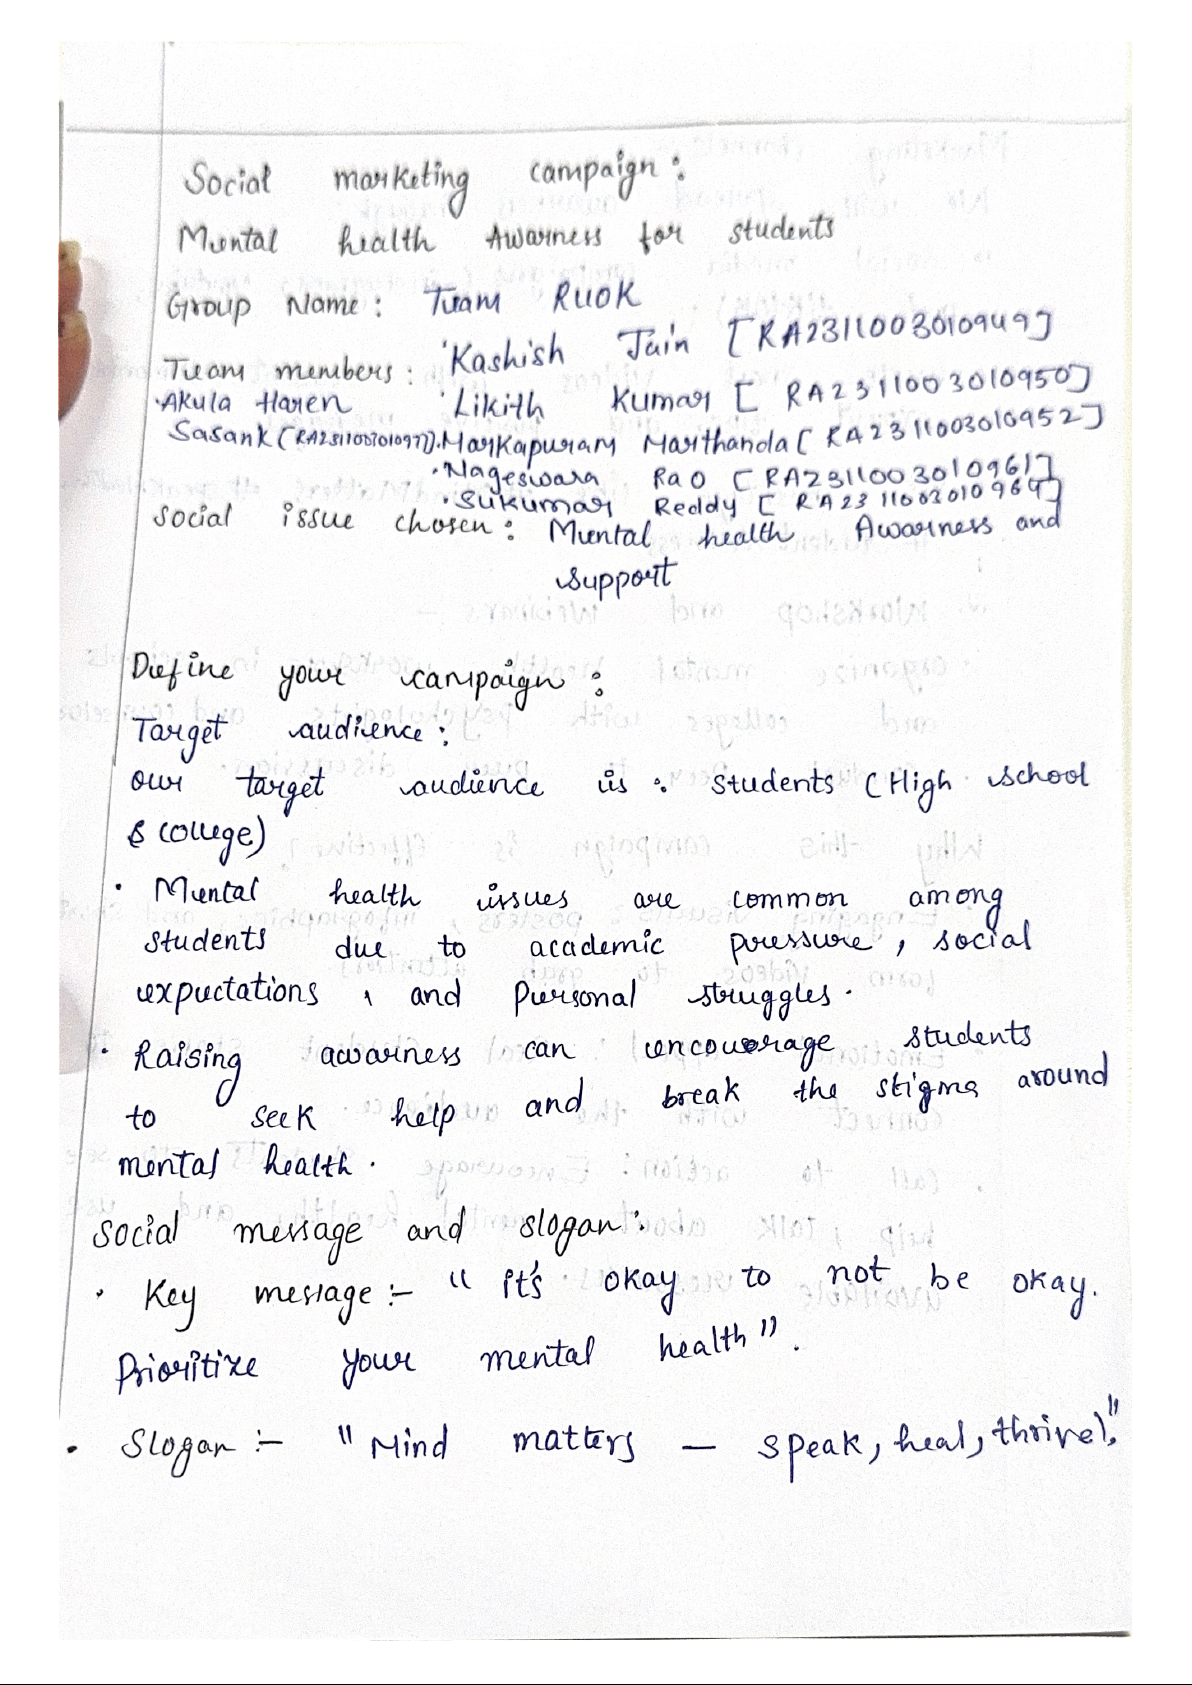 Social marketing campaign :
Mental health Awarness for students
Group Name : Team RUOK
Team members : ·Kashish Jain [RA2311003010949]
·Akula Haren ·Likith Kumar [ RA2311003010950]
Sasank [RA2311003010977] ·Markapuram Marthanda [ RA2311003010952]
·Nageswara Rao [ RA2311003010961]
·Sukumar Reddy [ RA2311003010964]
Social issue chosen : Mental health Awarness and
support
Define your campaign :
Target audience :
our target audience is : students (High school
& college)
· Mental health issues are common among
students due to academic pressure , social
expectations , and personal struggles .
· Raising awarness can encourage students
to seek help and break the stigma around
mental health .
Social message and slogan :
· Key message :- " it's okay to not be okay.
Prioritize your mental health" .
· Slogan :- " Mind matters — speak, heal, thrive!"